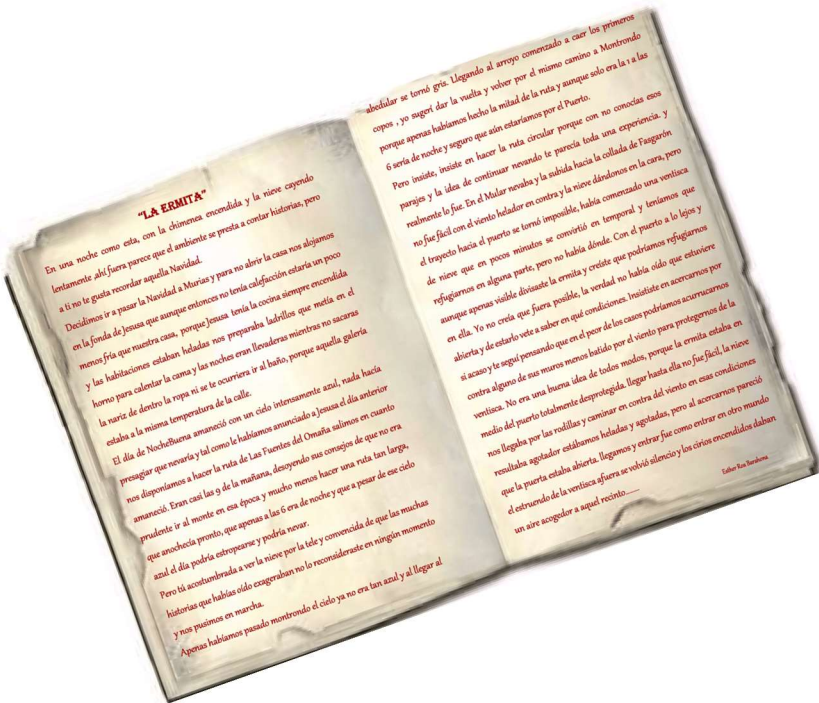 "LA ERMITA"
En una noche como esta, con la chimenea encendida y la nieve cayendo
lentamente ,ahí fuera parece que el ambiente se presta a contar historias, pero
a ti no te gusta recordar aquella Navidad.
Decidimos ir a pasar la Navidad a Murias y para no abrir la casa nos alojamos
en la fonda de Jesusa que aunque entonces no tenía calefacción estaría un poco
menos fría que nuestra casa, porque Jesusa tenía la cocina siempre encendida
y las habitaciones estaban heladas nos preparaba ladrillos que metía en el
horno para calentar la cama y las noches eran llevaderas mientras no sacaras
la nariz de dentro la ropa ni se te ocurriera ir al baño, porque aquella galería
estaba a la misma temperatura de la calle.
El día de NocheBuena amaneció con un cielo intensamente azul, nada hacía
presagiar que nevaría y tal como le habíamos anunciado a Jesusa el día anterior
nos disponíamos a hacer la ruta de Las Fuentes del Omaña salimos en cuanto
amaneció. Eran casi las 9 de la mañana, desoyendo sus consejos de que no era
prudente ir al monte en esa época y mucho menos hacer una ruta tan larga,
que anochecía pronto, que apenas a las 6 era de noche y que a pesar de ese cielo
azul el día podría estropearse y podría nevar.
Pero tú acostumbrada a ver la nieve por la tele y convencida de que las muchas
historias que habías oído exageraban no lo reconsideraste en ningún momento
y nos pusimos en marcha.
Apenas habíamos pasado montrondo el cielo ya no era tan azul y al llegar al
abedular se tornó gris. Llegando al arroyo comenzado a caer los primeros
copos , yo sugerí dar la vuelta y volver por el mismo camino a Montrondo
porque apenas habíamos hecho la mitad de la ruta y aunque solo era la 1 a las
6 sería de noche y seguro que aún estaríamos por el Puerto.
Pero insiste, insiste en hacer la ruta circular porque con no conocías esos
parajes y la idea de continuar nevando te parecía toda una experiencia. y
realmente lo fue. En el Mular nevaba y la subida hacia la collada de Fasgarón
no fue fácil con el viento helador en contra y la nieve dándonos en la cara, pero
el trayecto hacia el puerto se tornó imposible, había comenzado una ventisca
de nieve que en pocos minutos se convirtió en temporal y teníamos que
refugiarnos en alguna parte, pero no había dónde. Con el puerto a lo lejos y
aunque apenas visible divisaste la ermita y creiste que podríamos refugiarnos
en ella. Yo no creía que fuera posible, la verdad no había oído que estuviere
abierta y de estarlo vete a saber en qué condiciones. Insististe en acercarnos por
si acaso y te seguí pensando que en el peor de los casos podríamos acurrucarnos
contra alguno de sus muros menos batido por el viento para protegernos de la
ventisca. No era una buena idea de todos modos, porque la ermita estaba en
medio del puerto totalmente desprotegida. llegar hasta ella no fue fácil, la nieve
nos llegaba por las rodillas y caminar en contra del viento en esas condiciones
resultaba agotador estábamos heladas y agotadas, pero al acercarnos pareció
que la puerta estaba abierta. llegamos y entrar fue como entrar en otro mundo
el estruendo de la ventisca afuera se volvió silencio y los cirios encendidos daban
un aire acogedor a aquel recinto.......
Esther Roa Barahona